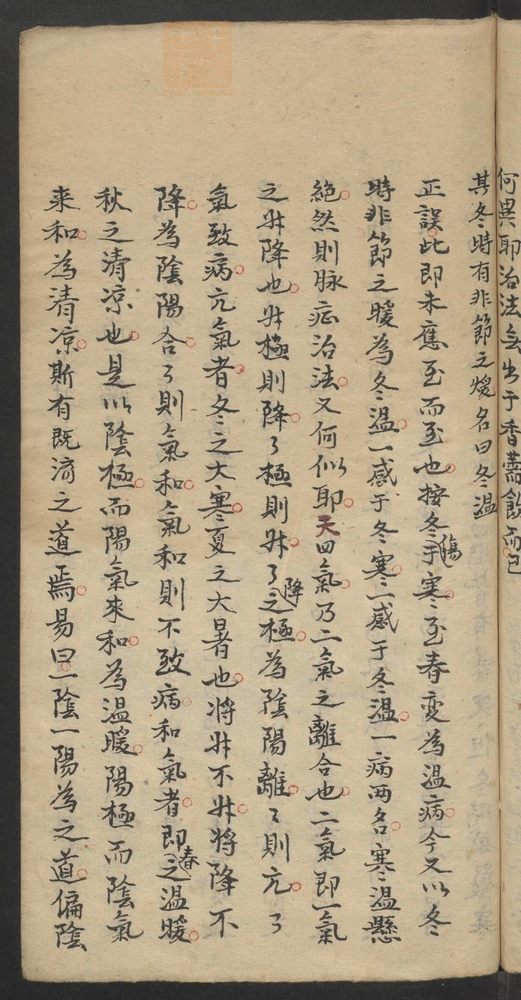 何異耶治法無出于香薷飲而已
其冬時有非節之煖名曰冬温
正誤此即未應至而至也按冬傷于寒至春変為温病今又以冬
時非節之暖為冬温一感于冬寒一感于冬温一病两名寒温懸
絶然則脉症治法又何似耶夭四氣乃二氣之離合也二氣即一氣
之升降也升極則降〻極則升〻降之極為陰陽離〻則亢〻
氣致病亢氣者冬之大寒夏之大暑也将升不升将降不
降為陰陽合〻則氣和氣和則不致病和氣者即春之温暖
秋之清凉也是以陰極而陽氣來和為温暖陽極而陰氣
来和為清凉斯有既濟之道焉易曰一陰一陽為之道偏陰